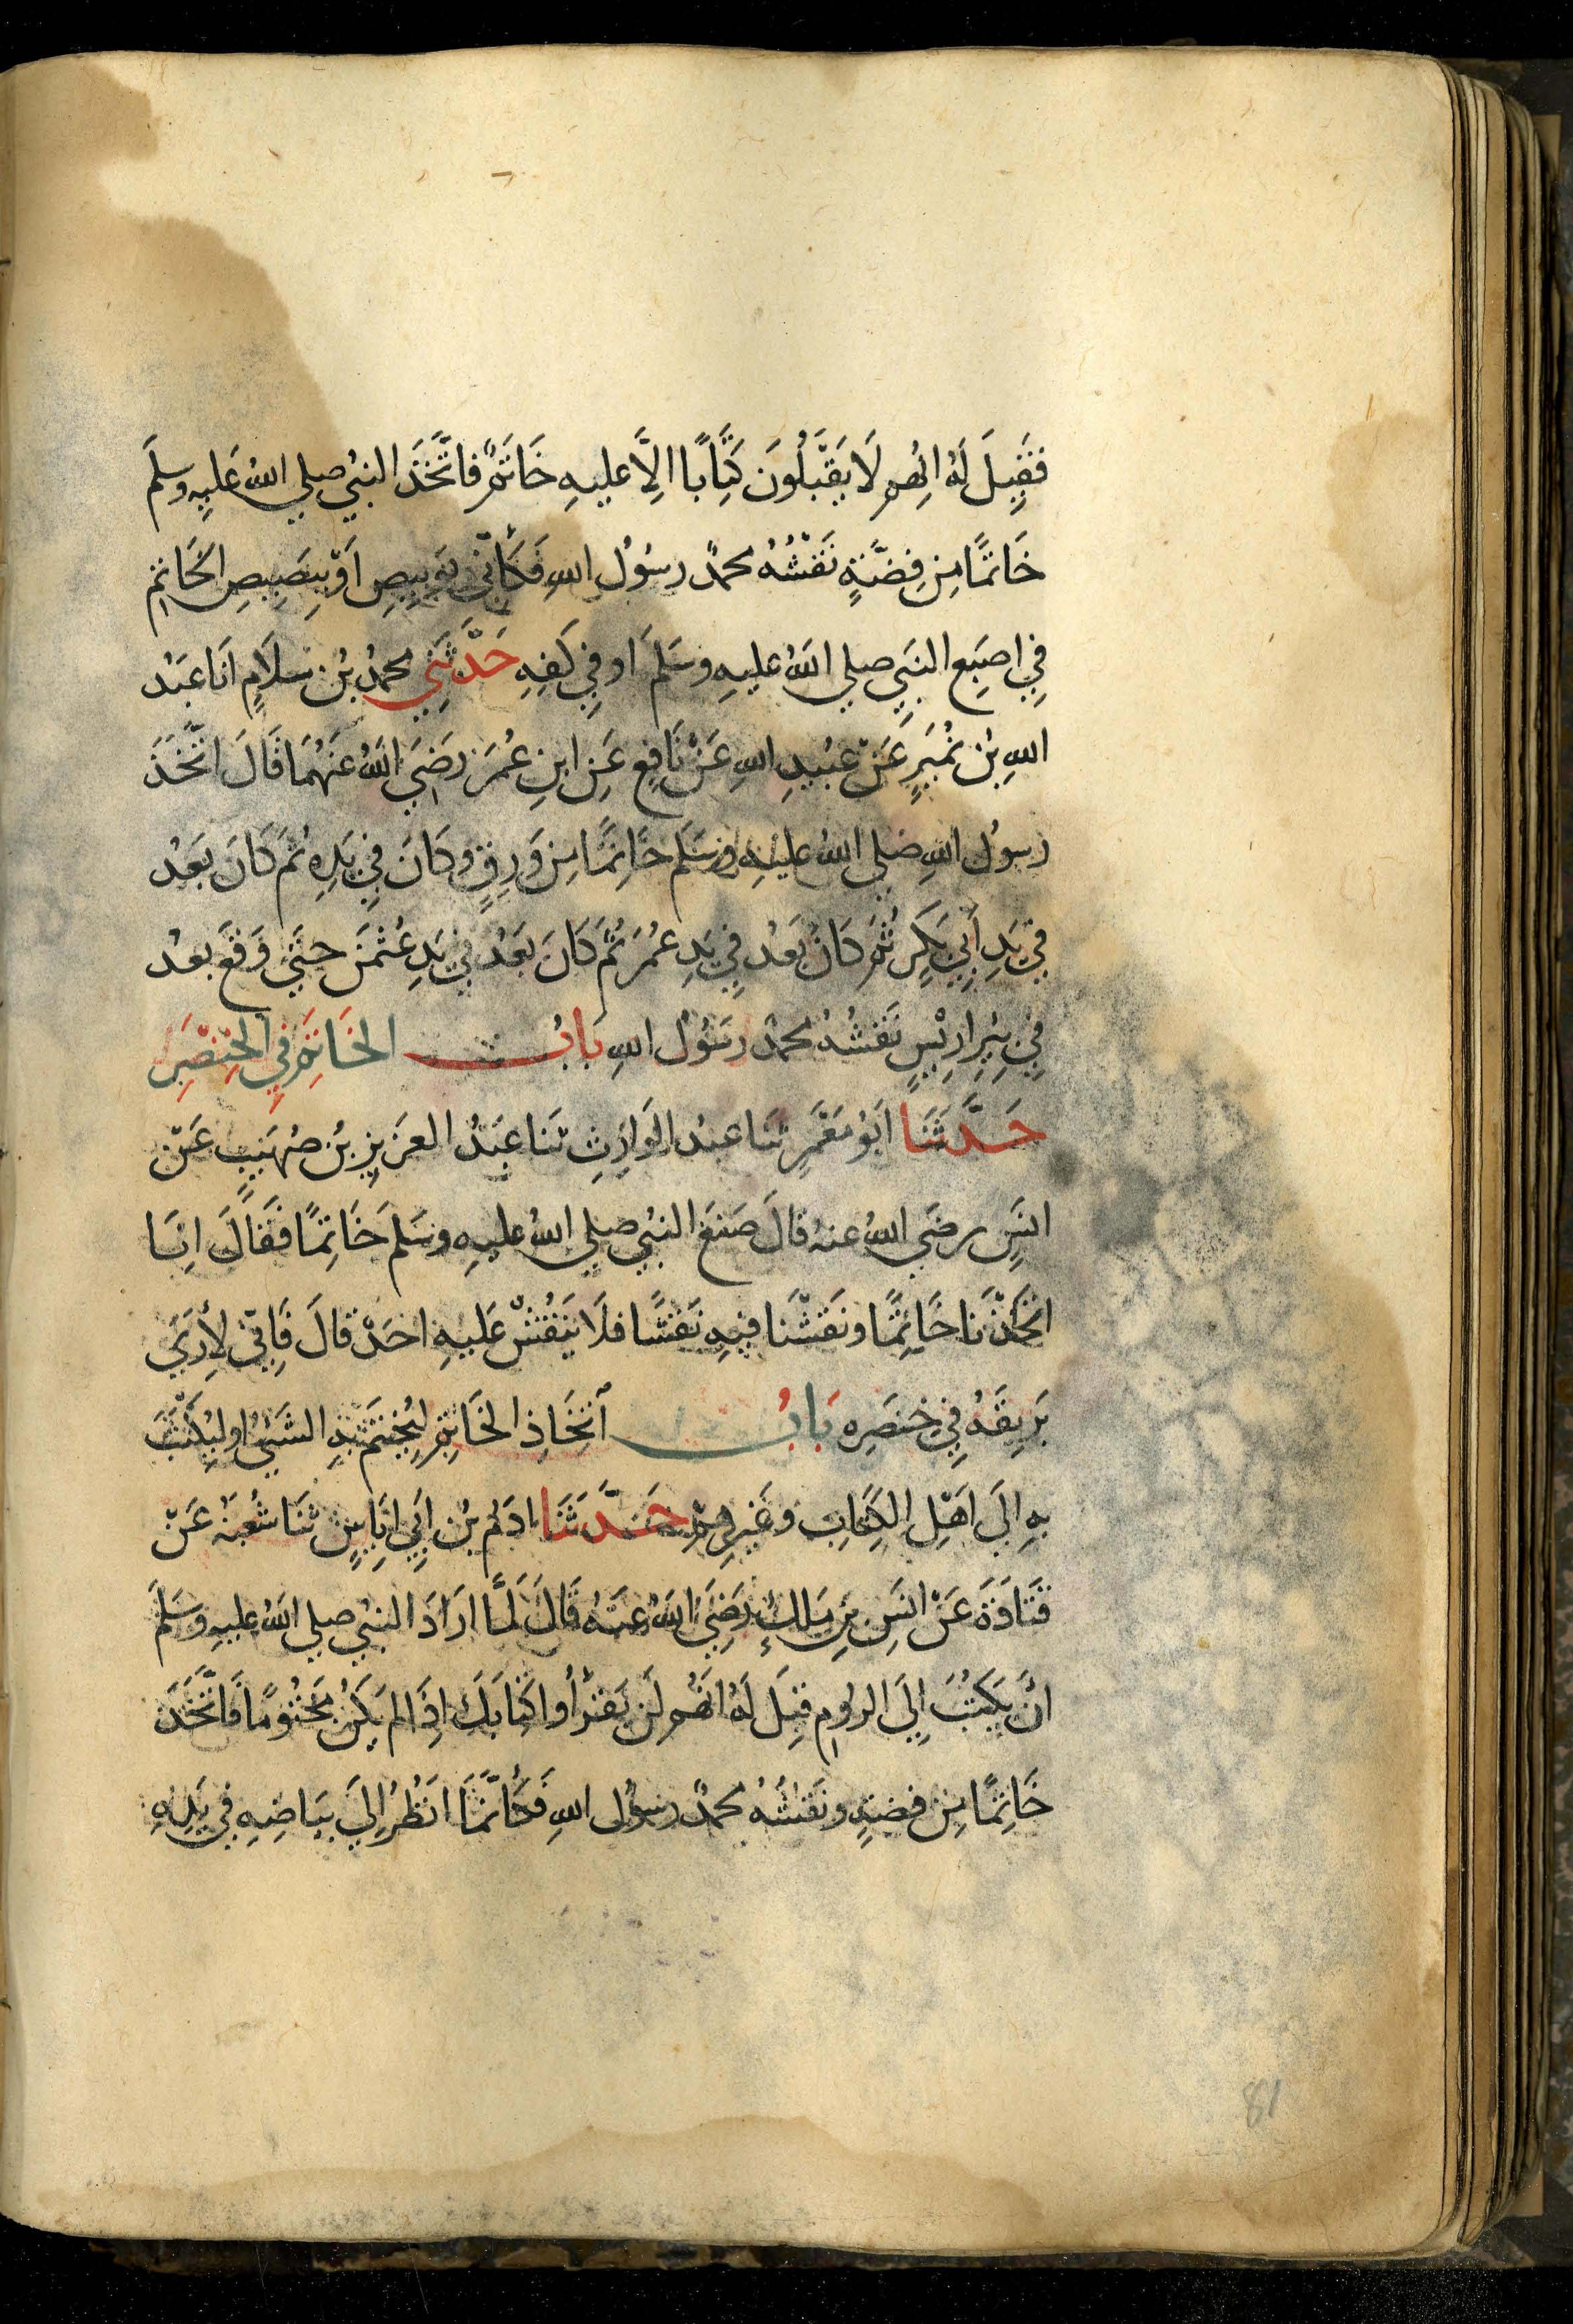 فَقِيلَ لَهُ اِنَّهُم لَا يَقْبَلُونَ كِتَابًا اِلَّا عليهِ خَاتَمٌ فاتَّخَذَ النبيُ صلي اللهُ عَليهِ وسلمَ
خَاتمًا مِن فِضَّةٍ نَقْشُهُ محمدٌ رسُولُ اللهِ فَكَأنّي بِوَبِيصِ اَوْ بِبَصِيصِ الخَاتِمِ
فِي اِصبَعِ النبَيِ صلي اللهُ عليهِ وسَلمَ او في كَفِهِ حَدَّثَنِي محمدُ بنُ سَلَامٍ اَنَا عَبْدُ
اللهِ بنُ نُمَيرٍ عَنْ عبُيدِ اللهِ عَنْ نَافِعٍ عَنِ ابنِ عُمَرَ رَضِيَ اللهُ عَنْهُمَا قَالَ اتَّخَذَ
رسولُ اللهِ صلي اللهُ عليهِ وسَلم خَاتِمًا مِن وَرِقٍ وكَانَ فِي يَدِهِ ثم كَانَ بَعْدُ
في يَدِ أَبِي بَكرٍ ثمَ كَانَ بَعْدُ فِي يَدِ عُمَرَ ثُم كَانَ بَعْدُ في يَدِ عُثمَنَ حتيَ وَقَعَ بعدُ
فِي بِيرِ ارِيْسٍ نَقْشُهُ محمدٌ رسُولُ اللهِ بَابُ الخَاتِمِ فِي الخِنْصِرِ
حَدَّثَنَا ابُو مَعْمَرٍ ثنا عبدُ الوَارِثِ ثنا عَبدُ العَزيزِ بنُ صُهَيبٍ عَنْ
انَسٍ رضَي اللهُ عنهُ قالَ صَنعَ النبيُ صلي اللهُ عليهِ وسَلمَ خَاتِمًا فَقَالَ اِنَا
اتَّخَذْنَا خَاتِمًا ونَقَشْنَا فيهِ نَقْشًا فلَا يَنْقُشْ عَليهِ احَدْ قالَ فَاِنّي لأَرَي
بَرِيقَهُ فِي خِنصَرِه بَابُ اتِّخَاذِ الخَاتِمِ لِيُختَمَ بهِ الشَيُ اولِيُكتَبَ
بهِ الَي اَهْلِ الكِتَابِ وغَيرِهِمْ حَدَّثَنَا ادَمُ بنُ ابَي اِيَاسٍ ثنا شُعبَةُ عَنْ
قتَادَةَ عَنْ انسِ بنِ مَلِكٍ رَضِيَ اللهُ عنهُ قَالَ لَمَّا ارَادَ النبيُ صلي اللهُ عليهِ وسَلمَ
انْ يَكتُبَ اِلَي الرومِ قيِلَ لَهُ انَهُم لَن يَقرَأوا كِتَابَكَ اِذَا لم يَكُنْ مَختُومًا فَاتَّخَذَ
خَاتِمًا مِن فِضةٍ ونَقشُهُ محمدٌ رسُولُ اللهِ فَكَأنَّمَا انَظُرُ اِلَي بيَاضِهِ في يَدِهِ
81